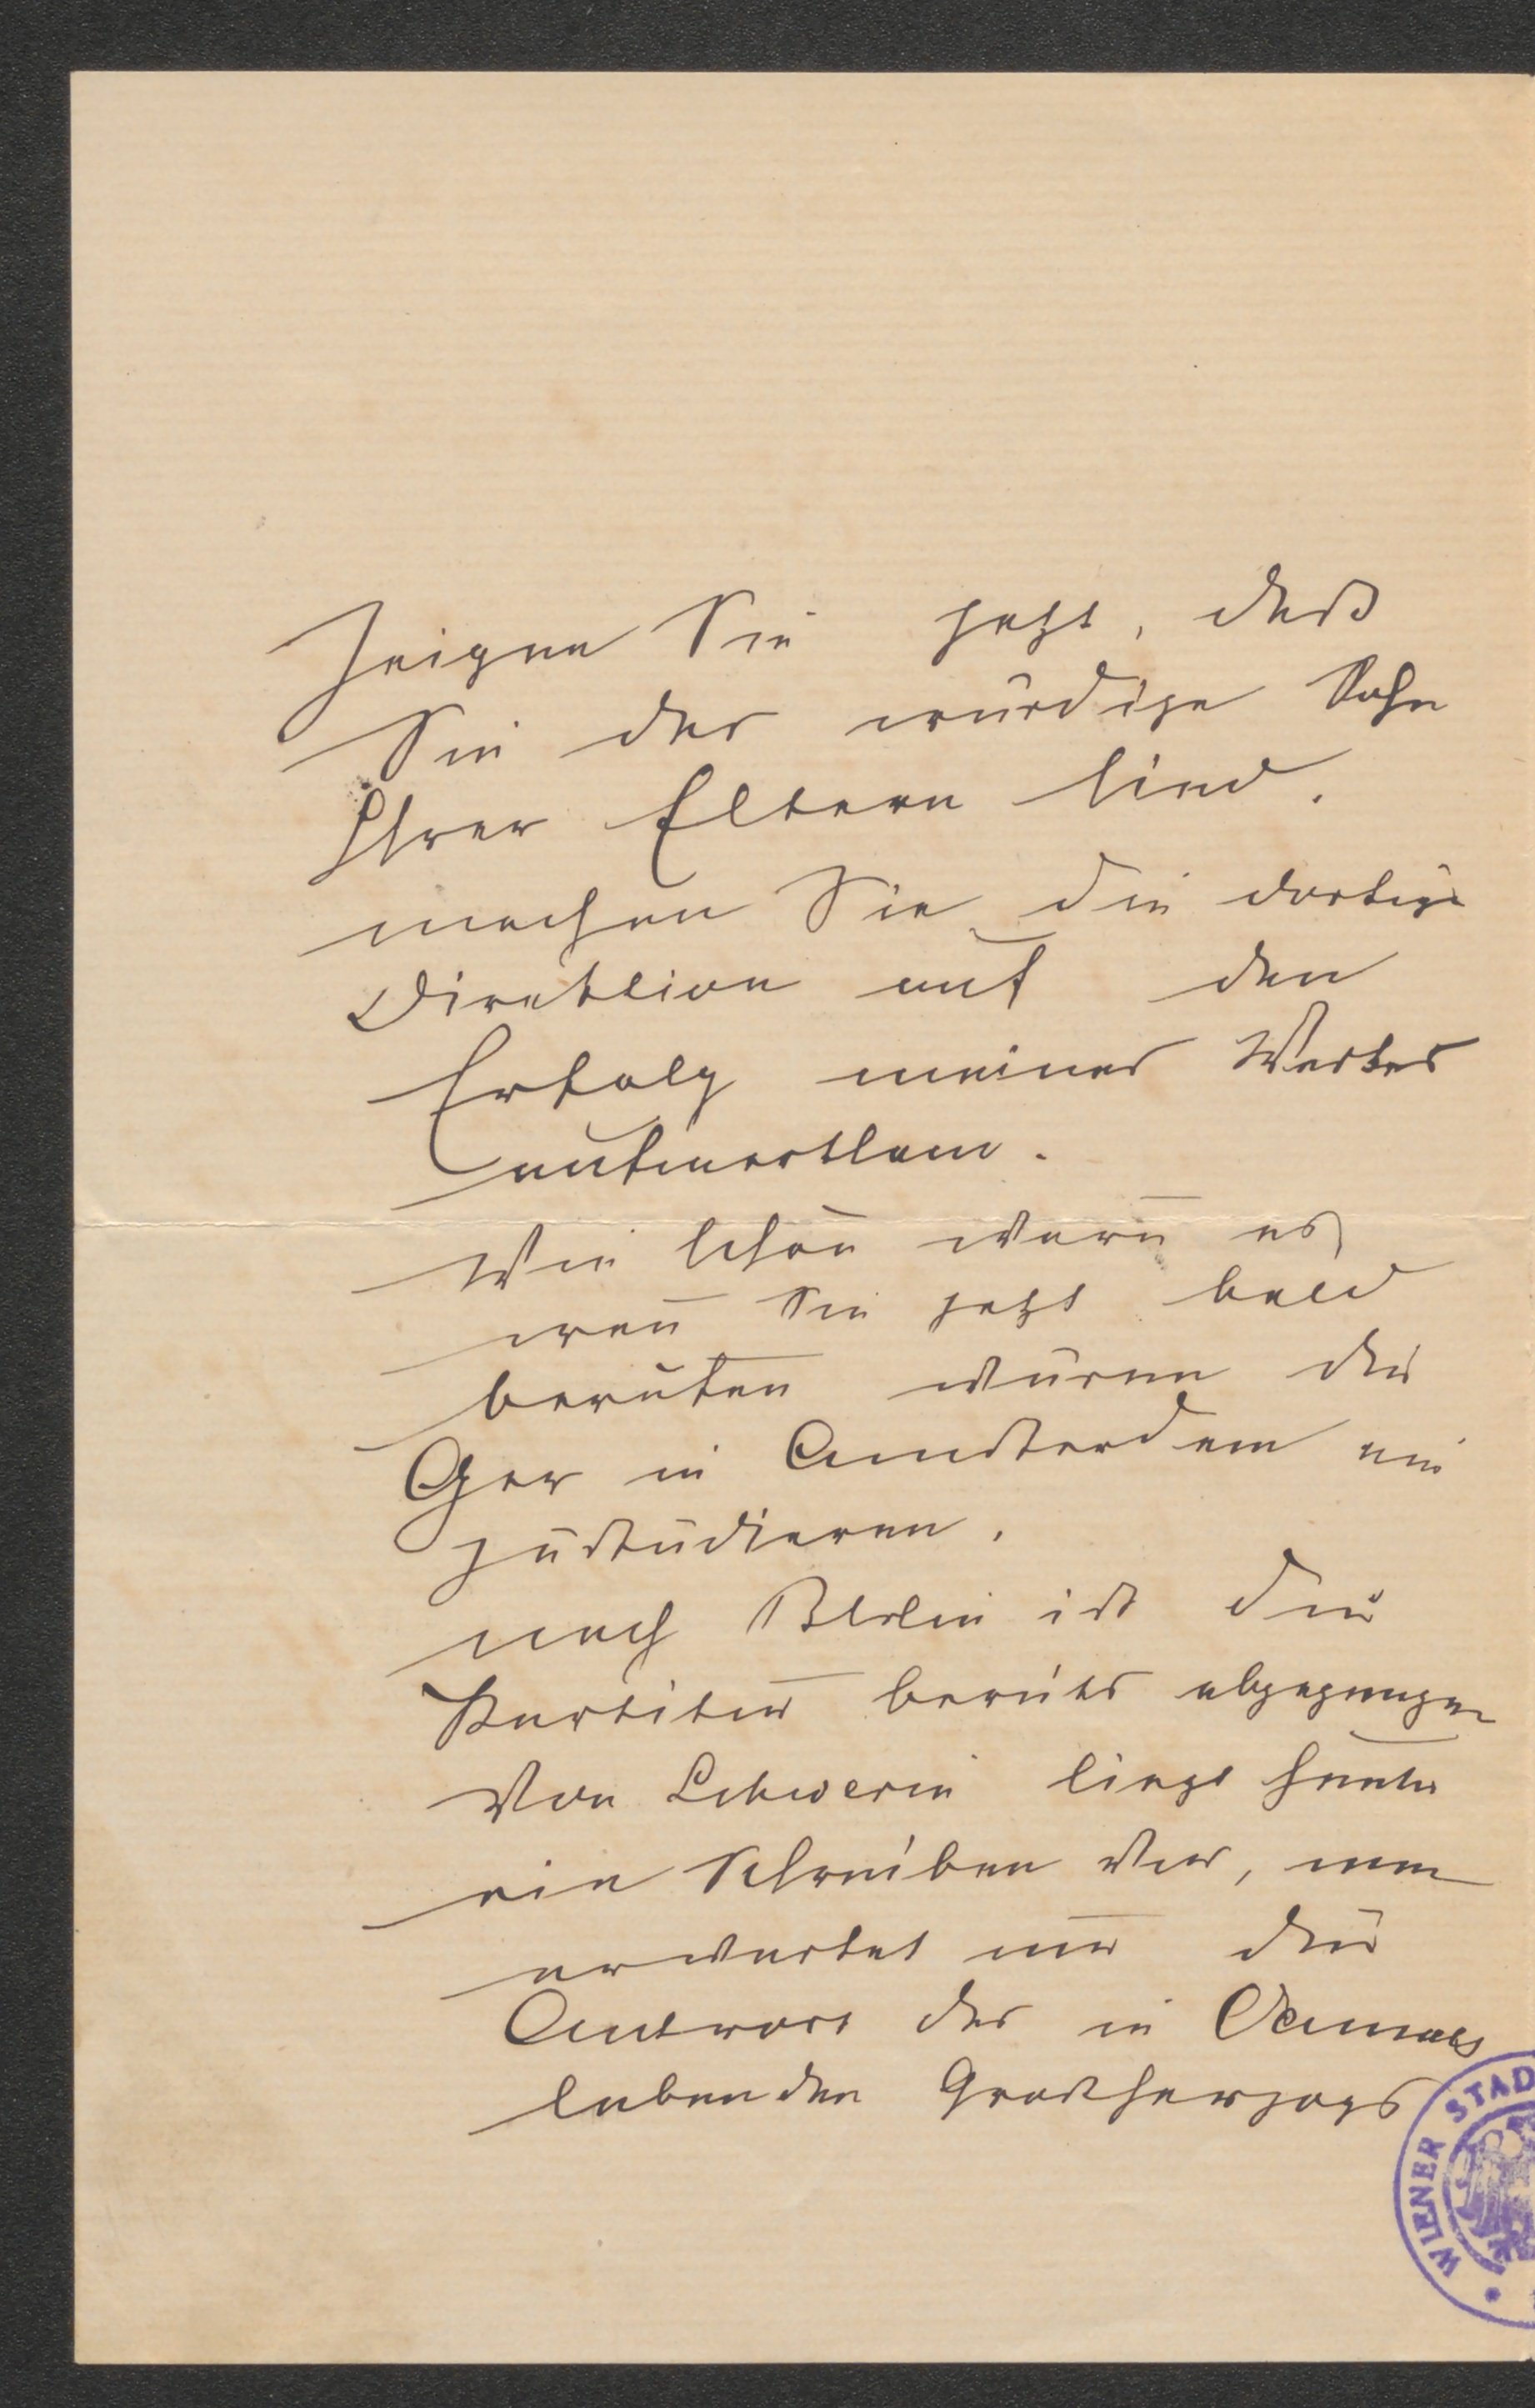 Zeigen Sie jetzt, daß
Sie der würdige Sohn
Ihrer Eltern sind.
machen Sie die dortige
Direktion auf den
Erfolg meines Werkes
aufmerksam.
Wie schön wäre es
weñ Sie jetzt bald
berufen würden die
Oper in Amsterdam ein
zustudieren.
nach Berlin ist die
Partitur bereits abgegangen
Von Schwerin liegt heute
ein Schreiben vor, man
erwartet nur die
Antwort des in Cannes
lebenden Großherzogs
WIENER STAD